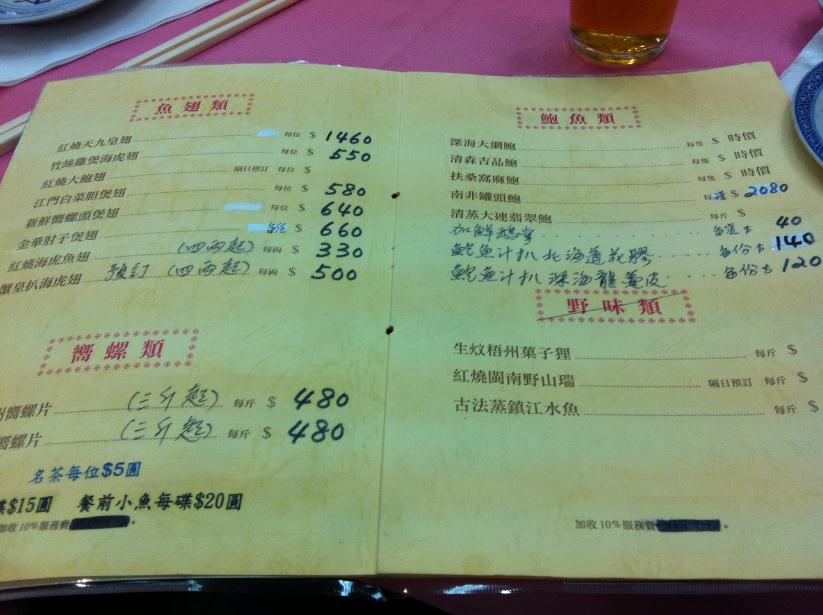 魚翅類
紅燒天九皇翅 每位 $ 1460
竹絲雞煲海虎翅 每位 $ 550
紅燒大鮑翅 隔日預訂 每位 $
江門白菜胆煲翅 每位 $ 580
新鮮嚮螺頭煲翅 每位 $ 640
金華肘子煲翅 $ 660
紅燒海虎魚翅 (四両起) 每両 $ 330
蟹皇扒海虎翅 預訂 (四両起) 每両 $ 500
嚮螺類
州嚮螺片 (三斤起) 每斤 $ 480
嚮螺片 (三斤起) 每斤 $ 480
名茶每位$5圓
$15圓 餐前小魚每碟$20圓
加收10%服務費
鮑魚類
深海大網鮑 每隻 $ 時價
清森吉品鮑 每隻 $ 時價
扶桑窩麻鮑 每隻 $ 時價
南非罐頭鮑 每罐 $ 2080
清蒸大連翡翠鮑 每斤 $
加鮮鵝掌 每隻 $ 40
鮑魚汁扒北海道花膠 每份$ 140
鮑魚汁扒深海龍躉皮 每份$ 120
野味類
生炆梧州菓子狸 每斤 $
紅燒閩南野山瑞 隔日預訂 每斤 $
古法蒸鎮江水魚 每斤 $
加收10%服務費